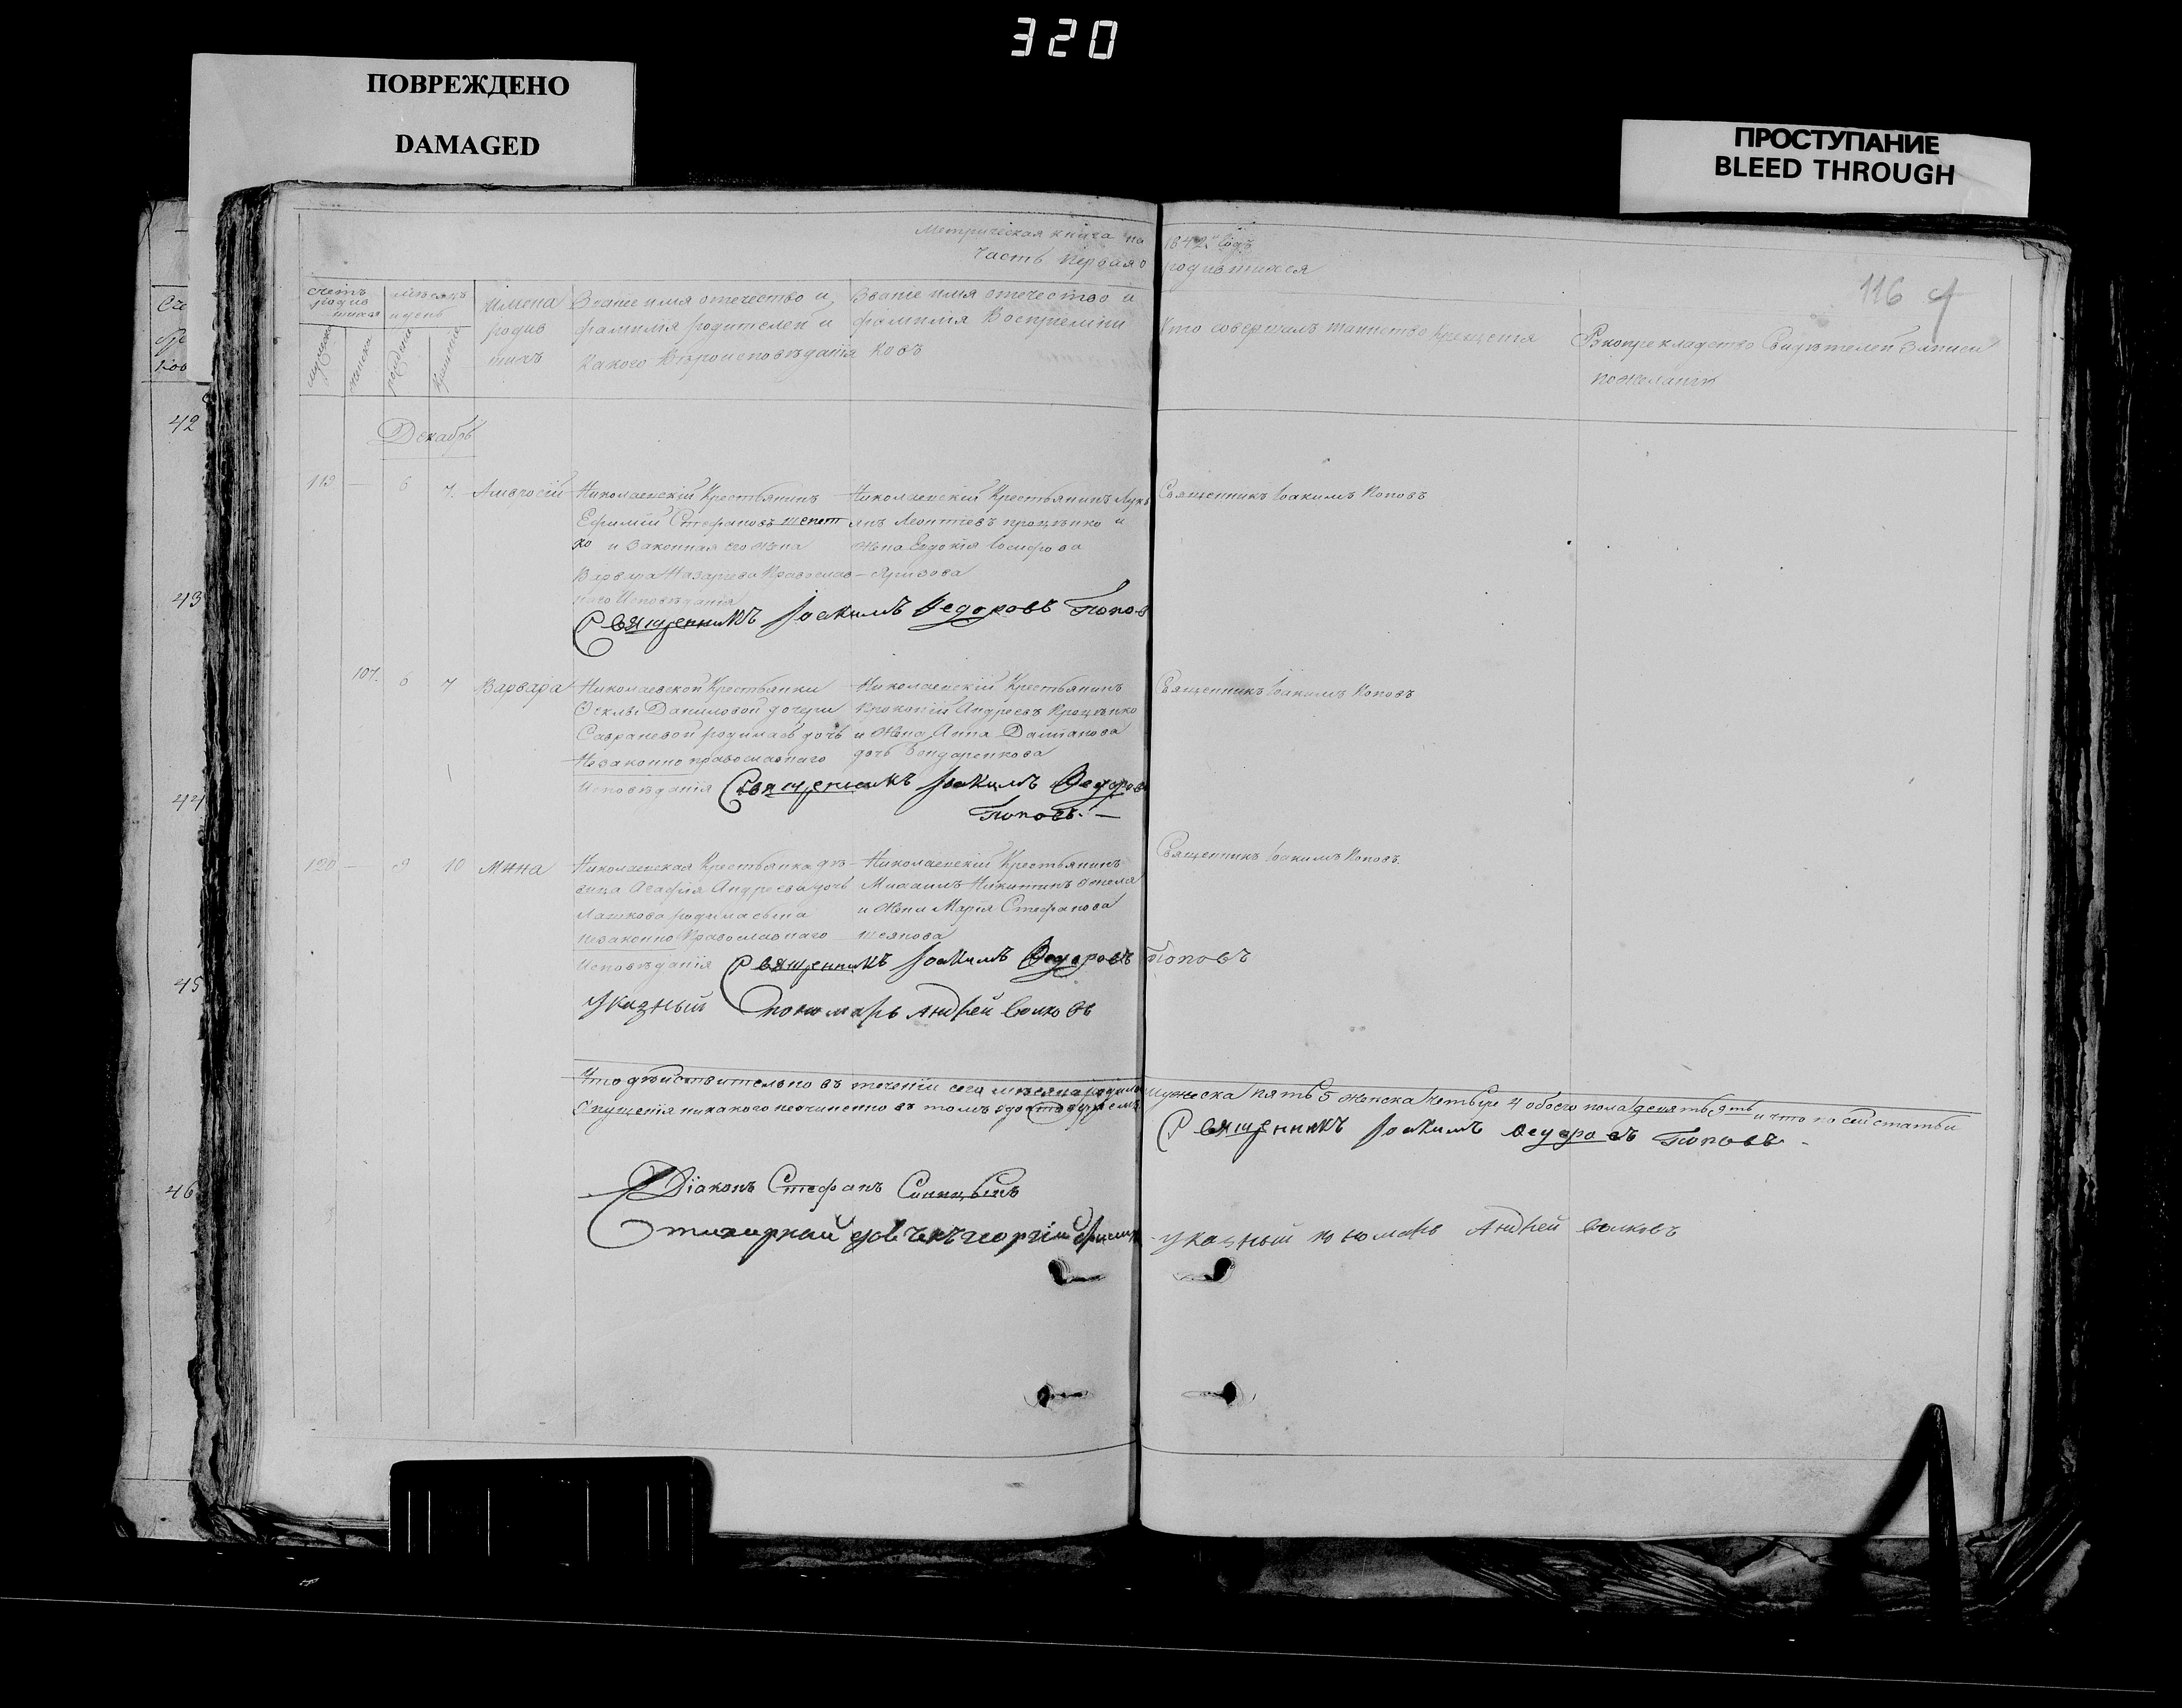 320
ПОВРЕЖДЕНО
DAMAGED
ПРОСТУПАНИЕ
BLEED THROUGH
Метрическая книга на 1842й годъ
Часть Первая о родившихся
116
счетъ родив шихся
мѣсяцъ и день
Имена родив шихъ
Званіе имя отечество и фамилія родителей и какого Вѣроисповѣданія
Званіе имя отечество и фамилія Воспріемни ковъ
Кто совершалъ таинство крещенія
Рукоприкладство Свидѣтелей Записи по желанію
мужска
женска
рожденія
крещенія
Декабрь
119 — 6 7. Амвросій
Николаевскій Крестьянинъ
Ефимій Стефановъ шепет
ко и законная его жена
Варвара Назарьева Православ
наго Исповѣданія
Николаевскій Крестьянинъ Лукь
янъ Леонтіевъ Проценко и
жена Евдокія Іосифова
Священникъ Іоакимъ Поповъ
Священникъ Іоакимъ Федоровъ Поповъ
107. 6 7 Варвара
Николаевской Крестьянки
Феклы Даниловой дочери
Савраневой родилась дочь
Незаконно православнаго
Исповѣданія
Николаевскій Крестьянинъ
Прокопій Андреевъ Проценко
и жена Анна
дочь Бондаренкова
Священникъ Іоакимъ Поповъ
Священникъ Іоакимъ Федоровъ
Поповъ. —
120 — 9 10 Мина
Николаевская Крестьянка дѣ-
вица Агафія Андреева дочь
Лашкова родила сына
незаконно Православнаго
Исповѣданія
Николаевскій Крестьянинъ
Михаилъ Никитинъ
и жена Марія Стефанова
Священникъ Іоакимъ Поповъ.
Священникъ Іоакимъ Федоровъ Поповъ
Указный пономарь Андрей Волковъ
Что дѣйствительно въ теченіи сего мѣсяца родилось мужеска пять 5 женска четыре 4 обоего пола девять, и что по сей статьи
опущенія никакого неучиненно въ томъ
Священникъ Іоакимъ Федоровъ Поповъ. -
Діаконъ Стефанъ Синицынъ
указный пономарь Андрей Волковъ
42
43
44
45
46